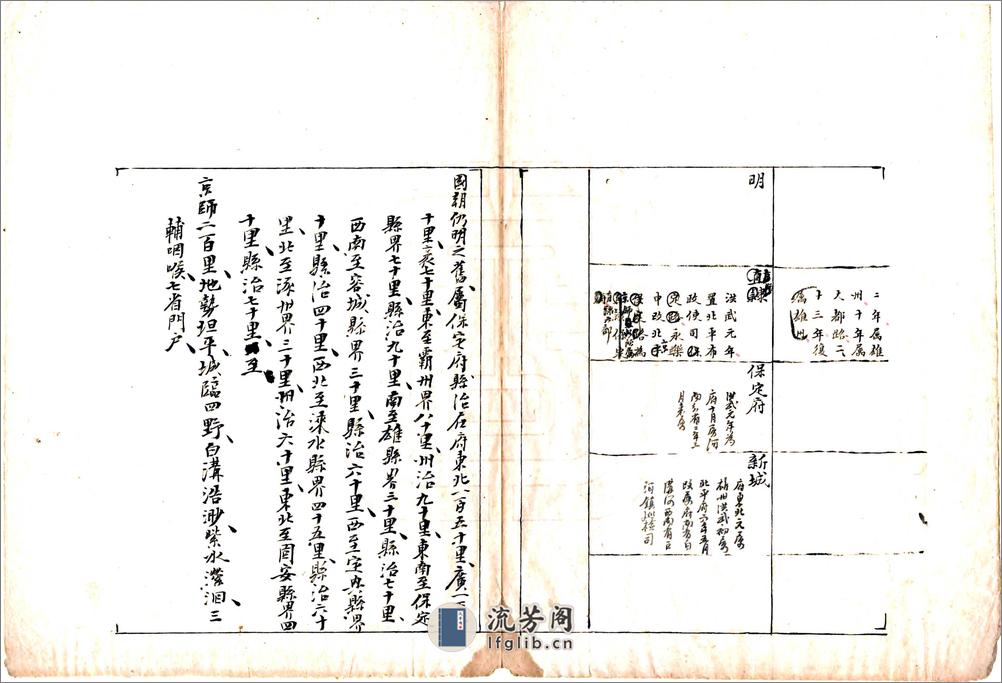 二年属雄
州十年属
大都路二
十三年後
明
洪武元年
置北平布
政使司保
定路永樂
中改北京
保定府
洪武元年為
府十月屬河
南分省二年三
月来屬
新城
府東北元屬
雄州洪武初屬
北平府六年五月
改屬府南有白
溝河西南有巨
河鎮巡檢司
國朝仍明之舊屬保定府縣治在府東北一百五十里廣一百
十里袤七十里東至霸州界八十里州治九十里東南至保定
縣界七十里縣治九十里南至雄縣界三十里縣治七十里
西南至容城縣界三十里縣治六十里西至定興縣界
十里縣治四十里西北至淶水縣界四十五里縣治六十
里北至涿州界三十里州治六十里東北至固安縣界四
十里縣治七十里至
京師二百里地勢坦平城臨四野白溝浩渺紫水瀠洄三
輔咽喉七省門戶
流芳阁
lfglib.cn